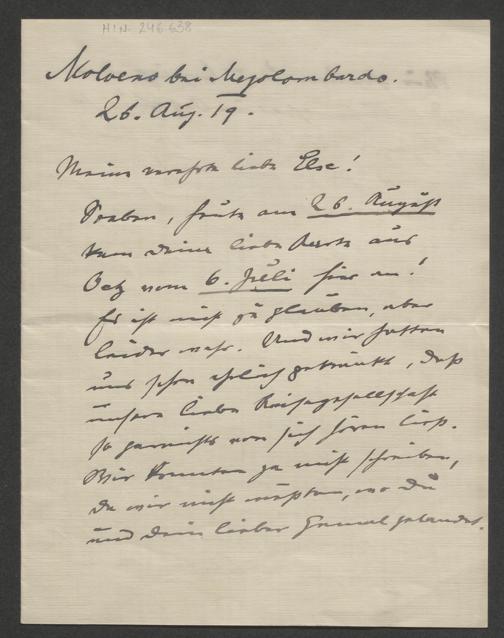 HIN. 246 638
Molveno bei Mezolombardo.
26. Aug. 19.
Meine verehrte liebe Else!
Soeben, heute am 26. August
kam Deine liebe Karte aus
Oetz vom 6. Juli hier an!
Es ist nicht zu glauben, aber
leider wahr. Und wir hatten
uns schon ehrlich gekränkt, daß
unsere liebe Reisegesellschaft
so garnichts von sich hören ließ.
Wir konnten ja nicht schreiben,
da wir nicht wußten, wo Du
und Dein lieber Gemal gelandet.